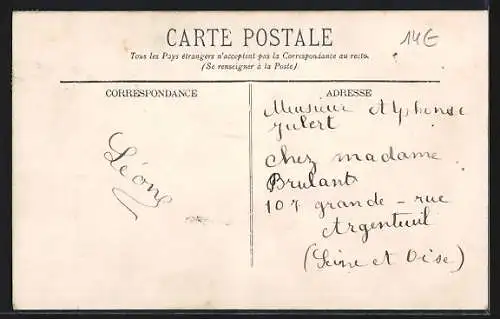 CARTE POSTALE
14€
Tous les Pays étrangers n'acceptent pas la Correspondance au recto.
(Se renseigner à la Poste)
CORRESPONDANCE
Léone
ADRESSE
Monsieur Alphonse
Julert
chez madame
Brulant
107 grande - rue
Argenteuil
(Seine et Oise)